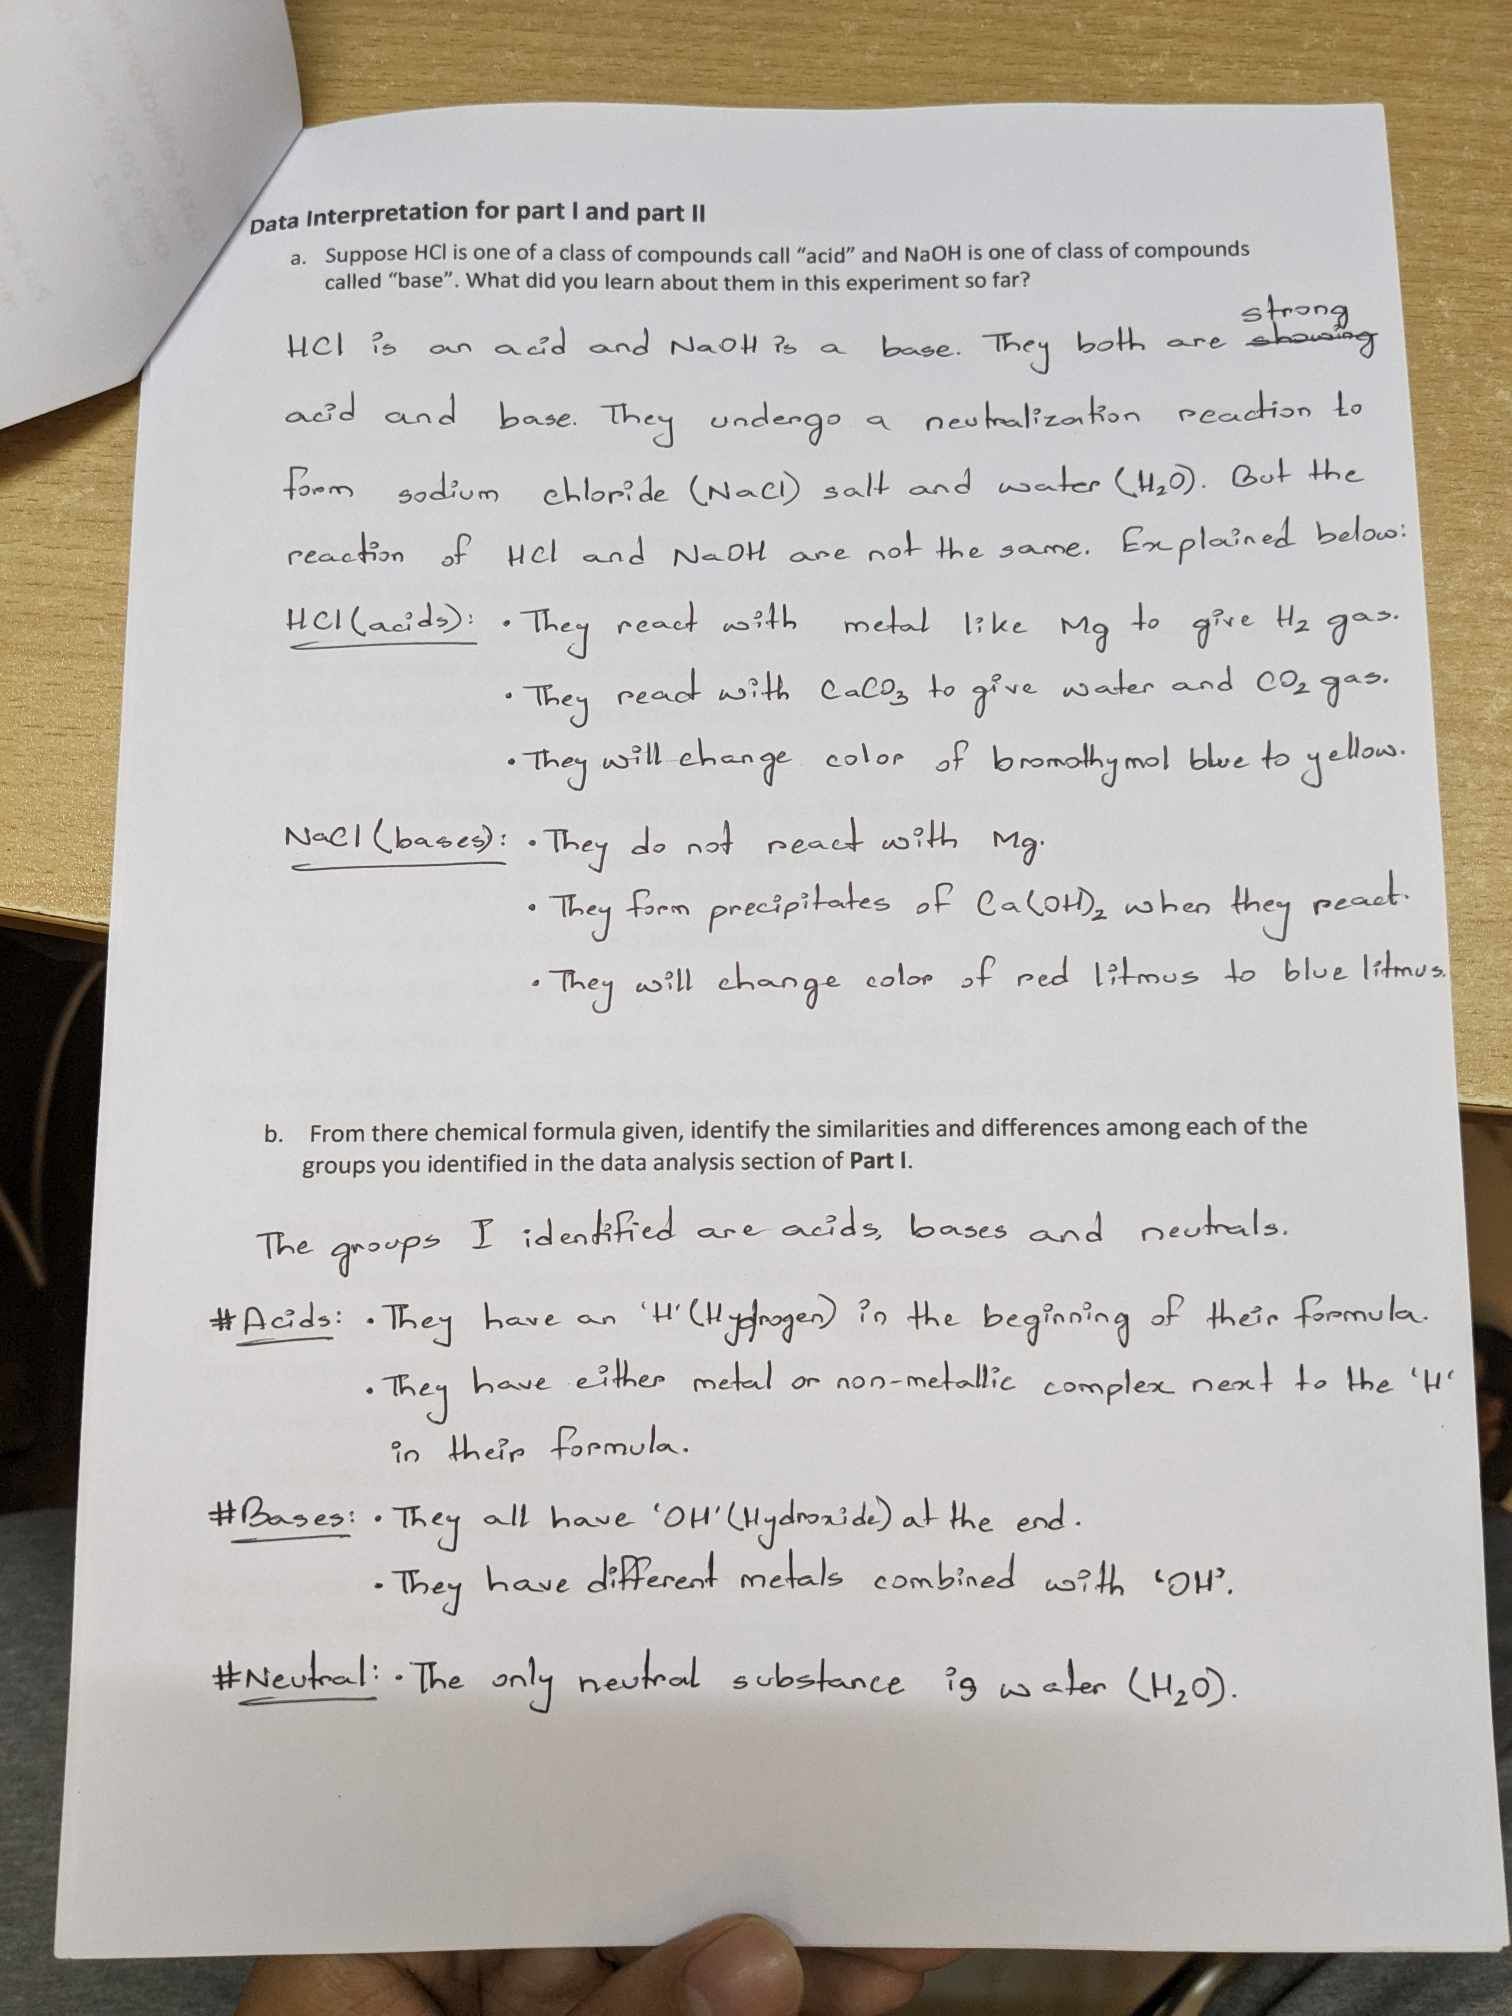 Data Interpretation for part I and part II
a. Suppose HCl is one of a class of compounds call “acid” and NaOH is one of class of compounds
called “base”. What did you learn about them in this experiment so far?
strong
HCl is an acid and NaOH is a base. They both are showing
acid and base. They undergo a neutralization reaction to
form sodium chloride (NaCl) salt and water (H₂O). But the
reaction of HCl and NaOH are not the same. Explained below:
HCl (acids): • They react with metal like Mg to give H₂ gas.
• They react with CaCO₃ to give water and CO₂ gas.
• They will change color of bromothymol blue to yellow.
NaCl (bases): • They do not react with Mg.
• They form precipitates of Ca(OH)₂ when they react.
• They will change color of red litmus to blue litmus.
b. From there chemical formula given, identify the similarities and differences among each of the
groups you identified in the data analysis section of Part I.
The groups I identified are acids, bases and neutrals.
# Acids: • They have an 'H' (Hydrogen) in the beginning of their formula.
• They have either metal or non-metallic complex next to the 'H'
in their formula.
# Bases: • They all have 'OH' (Hydroxide) at the end.
• They have different metals combined with 'OH'.
# Neutral: • The only neutral substance is water (H₂O).